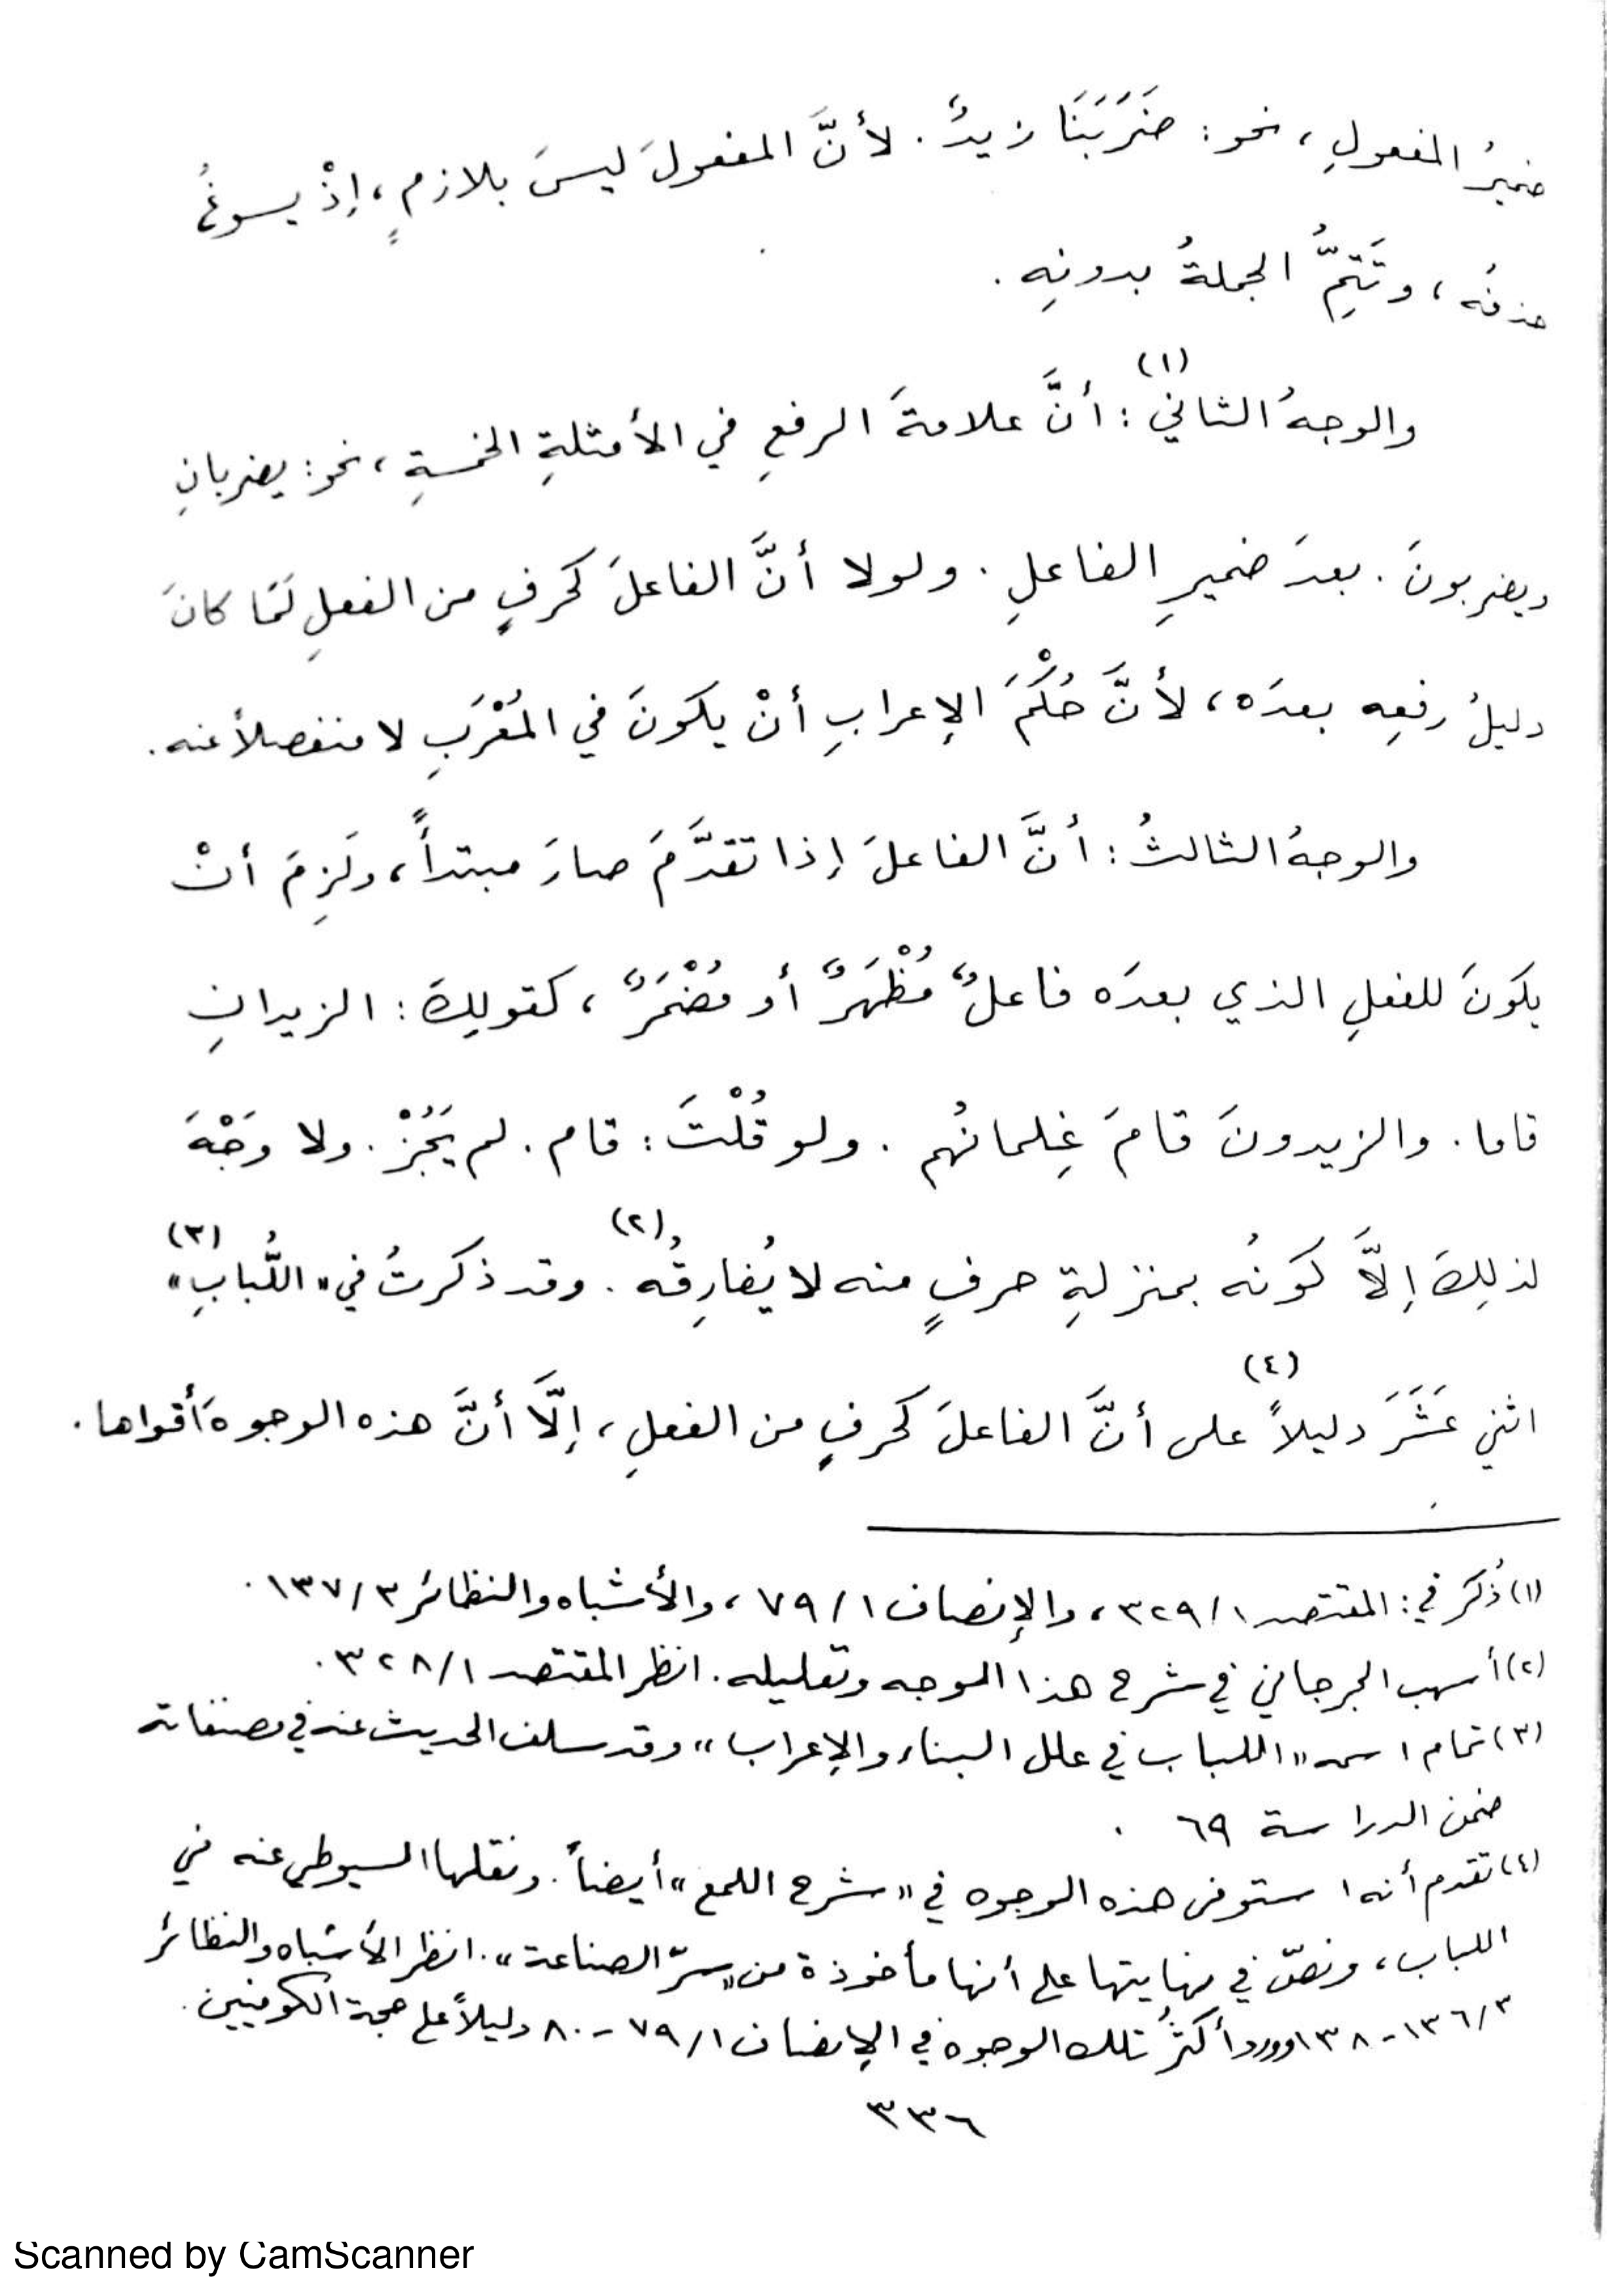 ضميرُ المفعولِ، نحو: ضَرَبَنَا زيدٌ. لأنَّ المفعولَ ليسَ بلازمٍ، إذْ يسوغُ
حذفُه، وتَتِمُّ الجملةُ بدونِه.
والوجهُ الثاني(١): أنَّ علامةَ الرفعِ في الأمثلةِ الخمسةِ، نحو: يضربانِ
ويضربونَ. بعدَ ضميرِ الفاعلِ. ولولا أنَّ الفاعلَ كحرفٍ من الفعلِ لَمَا كانَ
دليلُ رفعِه بعدَه، لأنَّ حُكْمَ الإعرابِ أنْ يكونَ في المُعْرَبِ لا منفصلاً عنه.
والوجهُ الثالثُ: أنَّ الفاعلَ إذا تقدَّمَ صارَ مبتدأً، ولَزِمَ أنْ
يكونَ للفعلِ الذي بعدَه فاعلٌ مُظْهَرٌ أو مُضْمَرٌ، كقولِكَ: الزيدانِ
قاما. والزيدونَ قامَ غِلمانُهم. ولو قُلْتَ: قام. لم يَجُزْ. ولا وَجْهَ
لذلِكَ إلاَّ كَونُه بمنزلةِ حرفٍ منه لا يُفارِقُه(٢). وقد ذكرتُ في «اللُّبابِ»(٣)
اثني عَشَرَ دليلاً(٤) على أنَّ الفاعلَ كحرفٍ من الفعلِ، إلَّا أنَّ هذه الوجوهَ أقواها.
(١) ذُكرَ في: المقتصد ٣٢٩/١، والإنصاف ٧٩/١، والأشباه والنظائر ١٣٧/٣.
(٢) أسهب الجرجاني في شرح هذا الوجه وتعليله. انظر المقتصد ٣٢٨/١.
(٣) تمام اسمه «اللباب في علل البناء والإعراب» وقد سلف الحديث عنه في مصنفاته
ضمن الدراسة ٦٩.
(٤) تقدم أنه استوفى هذه الوجوه في «شرح اللمع» أيضاً. ونقلها السيوطي عنه في
اللباب، ونصّ في نهايتها على أنها مأخوذة من «سرّ الصناعة». انظر الأشباه والنظائر
١٣٦/٣-١٣٨ وورد أكثرُ تلك الوجوه في الإنصاف ٧٩/١-٨٠ دليلاً على حجة الكوفيين.
٣٣٦
Scanned by CamScanner